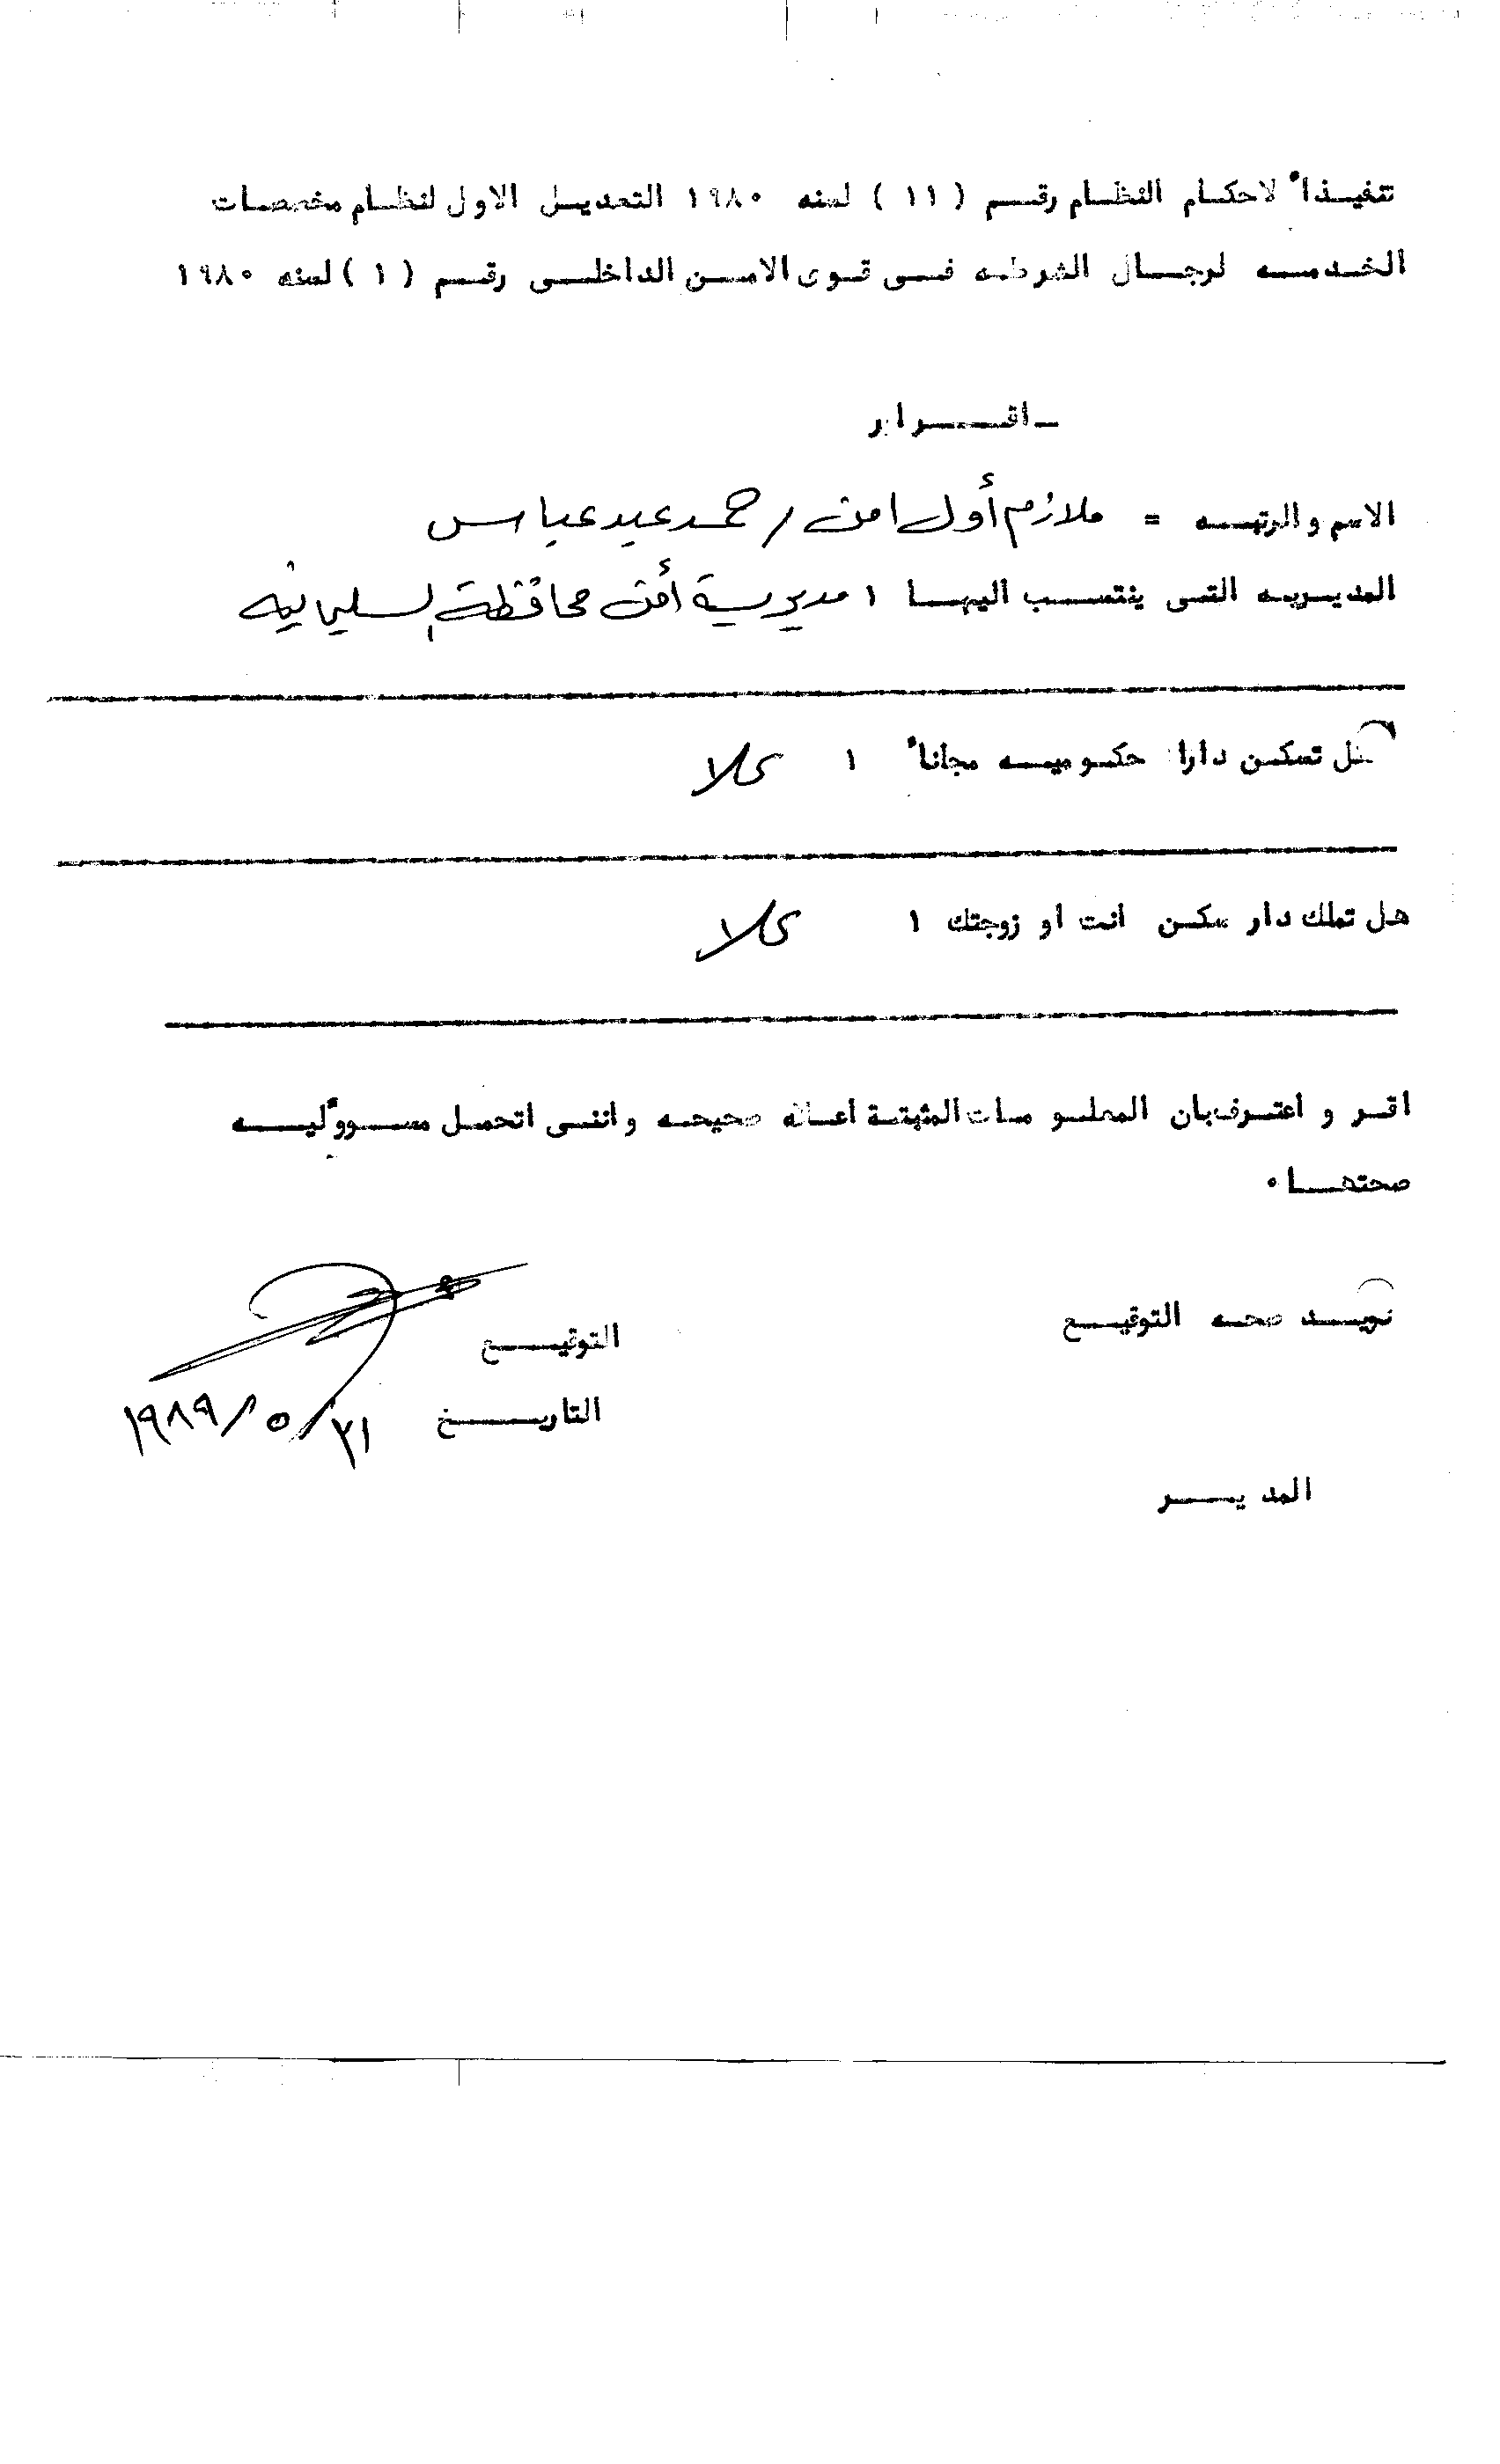 تنفيذاً لاحكام النظام رقم ( ١١ ) لسنه ١٩٨٠ التعديل الاول لنظام مخصصات
الخدمه لرجال الشرطه في قوى الامن الداخلي رقم ( ١ ) لسنه ١٩٨٠
ـ اقرار
الاسم والرتبه = ملازم أول امن / حمد عيد عباس
المديريه التي ينتسب اليها ١ مديرية أمن محافظة السليمانيه
هل تسكن دارا حكوميه مجاناً ١ كلا
هل تملك دار سكن انت او زوجتك ١ كلا
اقر و اعترف بان المعلومات المثبتة اعلاه صحيحه وانني اتحمل مسوؤليه
صحتها ٠
نويد صحه التوقيع
التوقيع
التاريخ ٢١ / ٥ / ١٩٨٩
المدير